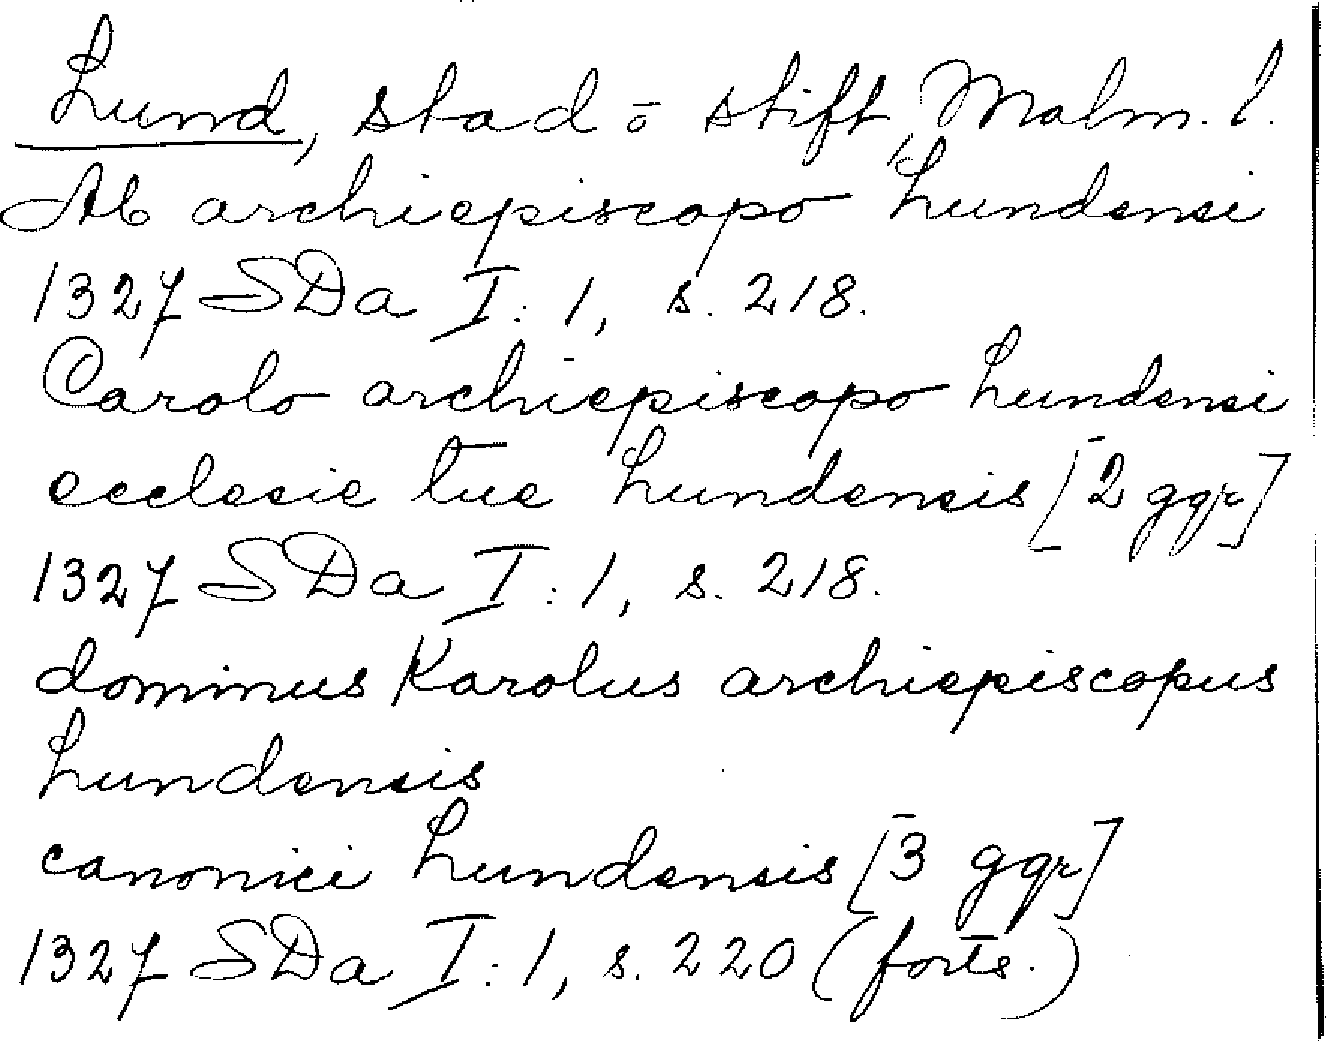 Lund, stad o stift, Malm. l.
Ab archiepiscopo Lundensi
1327 SDa I:1, s. 218.
Carolo archiepiscopo Lundensi
ecclesie tue Lundensis [2 ggr]
1327 SDa I:1, s. 218.
dominus Karolus archiepiscopus
Lundensis
canonici Lundensis [3 ggr]
1327 SDa I:1, s. 220 (forts.)